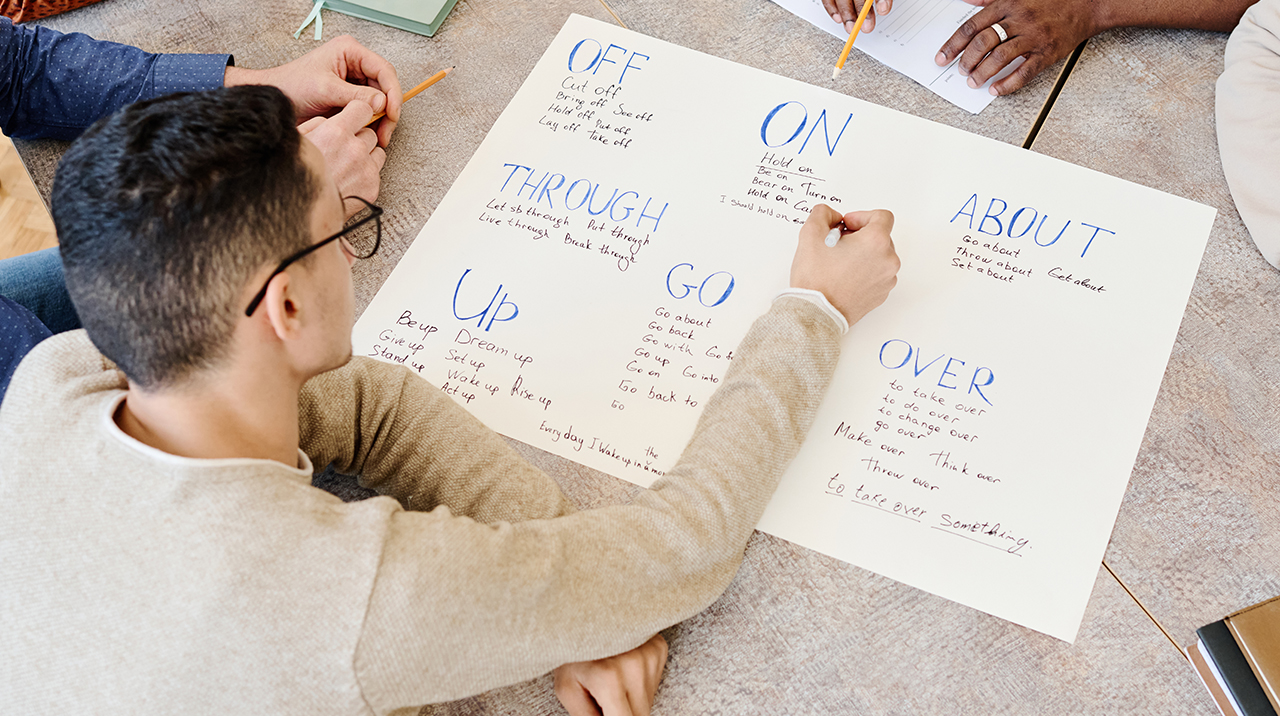 OFF
Cut off
Bring off See off
Hold off Put off
Lay off Take off
ON
Hold on
Be on Turn on
Bear on
Hold on
I should hold on
ABOUT
Go about
Throw about Get about
Set about
THROUGH
Let sb through Put through
Live through Break through
UP
Be up Dream up
Give up Set up
Stand up Wake up Rise up
Act up
Every day I Wake up in the
GO
Go about
Go back
Go with Go
Go up Go into
Go on
Go back to
Go
OVER
to take over
to do over
to change over
go over
Make over Think over
Throw over
to take over something.